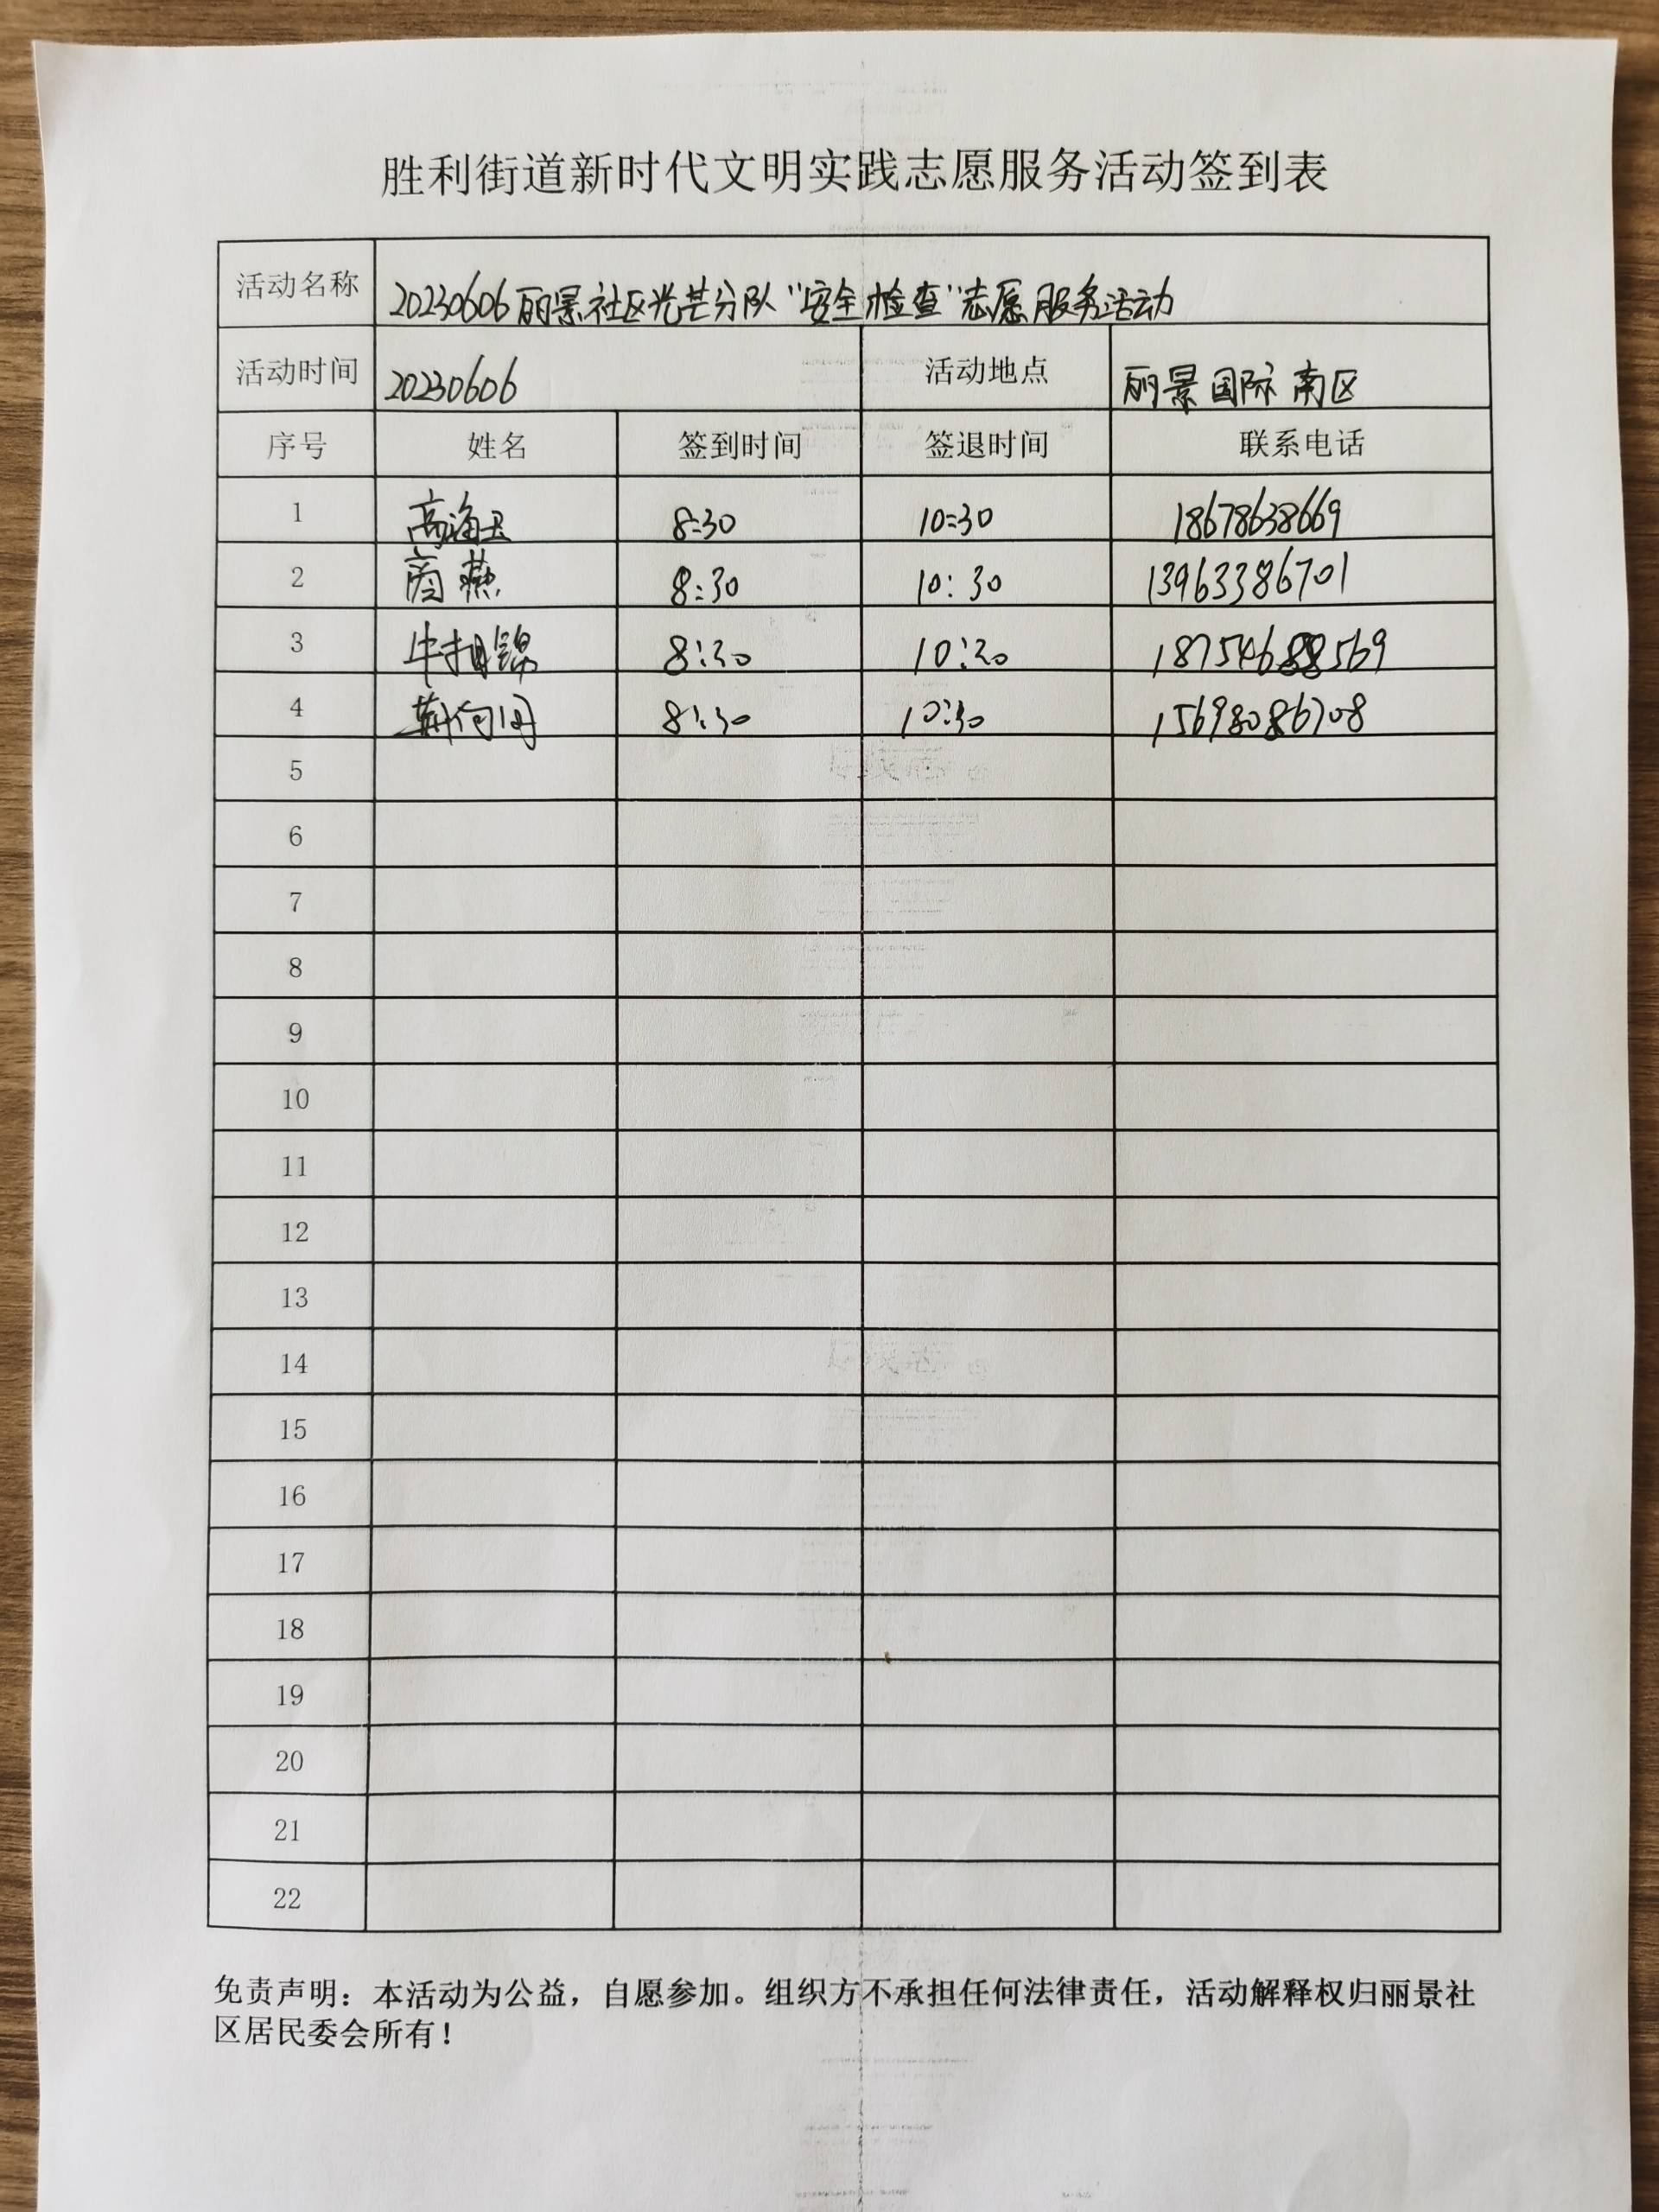 胜利街道新时代文明实践志愿服务活动签到表
活动名称 20230606丽景社区光芒分队"安全检查"志愿服务活动
活动时间 20230606 活动地点 丽景国际南区
序号 姓名 签到时间 签退时间 联系电话
1 高海玉 8:30 10:30 18678638669
2 商燕 8:30 10:30 13963386701
3 牛相锦 8:30 10:30 18754688569
4 荆向阳 8:30 10:30 15698086708
5
6
7
8
9
10
11
12
13
14
15
16
17
18
19
20
21
22
免责声明：本活动为公益，自愿参加。组织方不承担任何法律责任，活动解释权归丽景社
区居民委会所有！